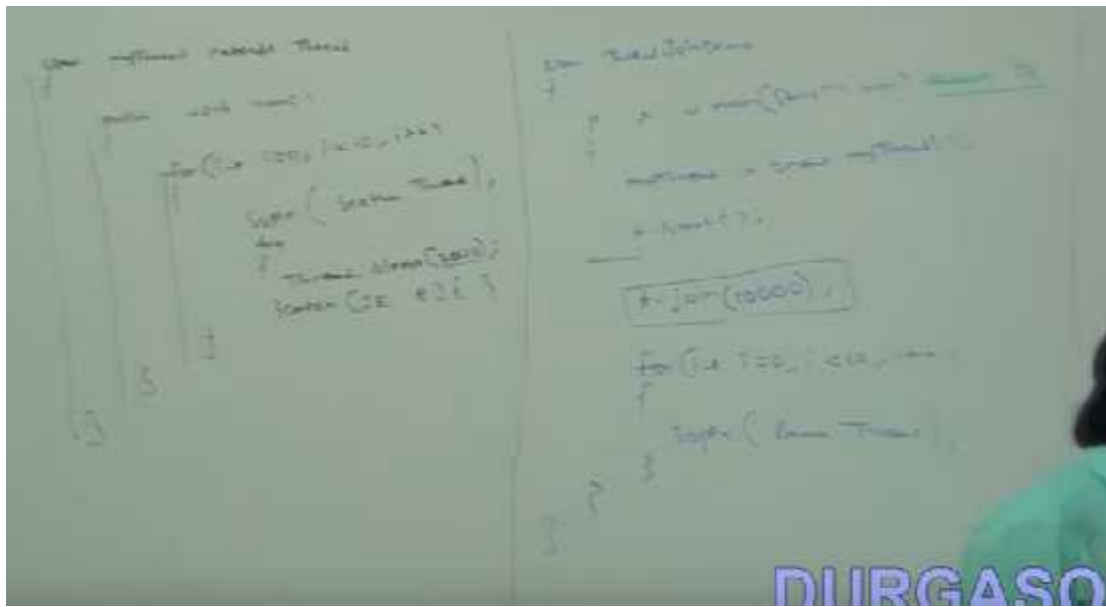 class myThread extends Thread
{
public void run()
{
for(int i=0; i<10; i++)
{
Sopln( Seetha Thread);
try
{
Thread.sleep(2000);
}catch (IE e){ }
}
}
}
class ThreadJoinDemo
{
p s v main(String[]
{
myThread t = new myThread();
t.start();
t.join(10000);
for(int i=0; i<10; i++)
{
Sopln( Rama Thread);
}
}
}
DURGASO